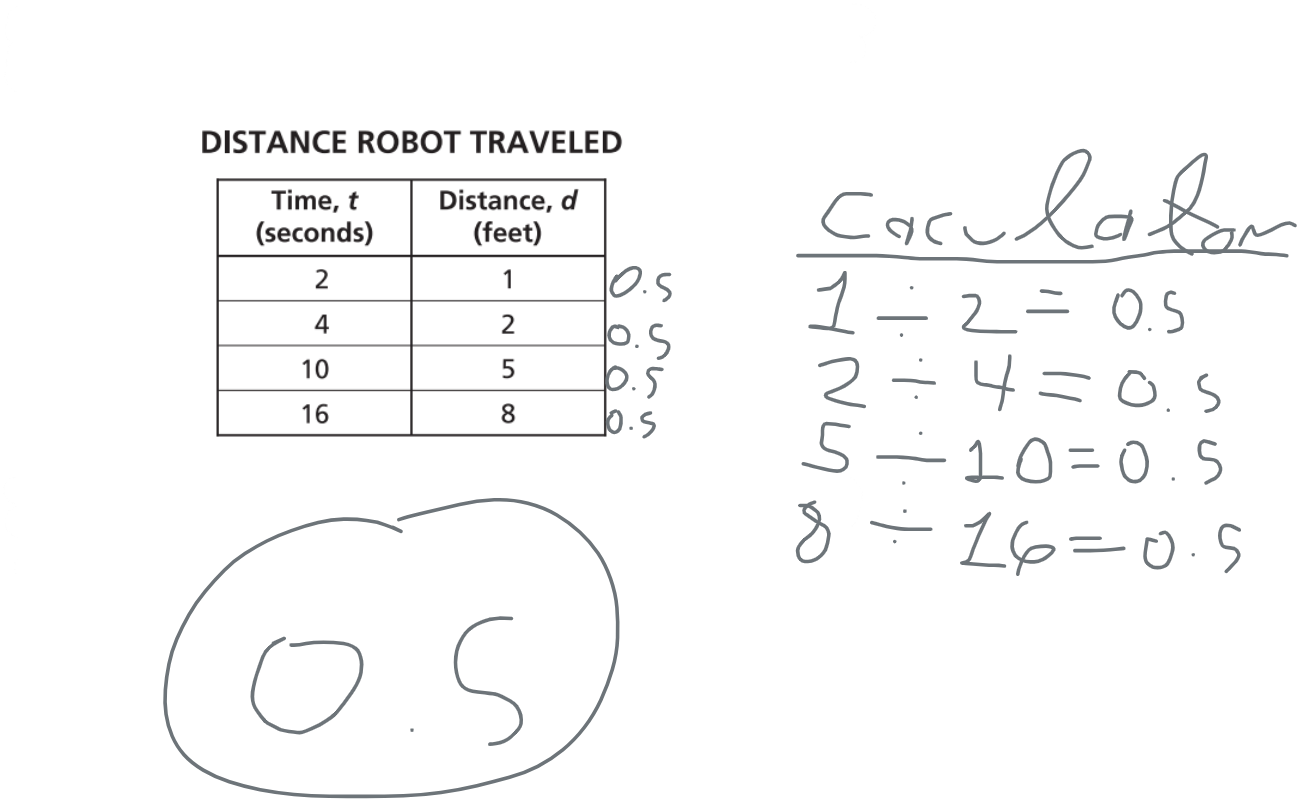 DISTANCE ROBOT TRAVELED
Time, t (seconds) Distance, d (feet)
2 1 0.5
4 2 0.5
10 5 0.5
16 8 0.5
Caculator
1 ÷ 2 = 0.5
2 ÷ 4 = 0.5
5 ÷ 10 = 0.5
8 ÷ 16 = 0.5
0.5